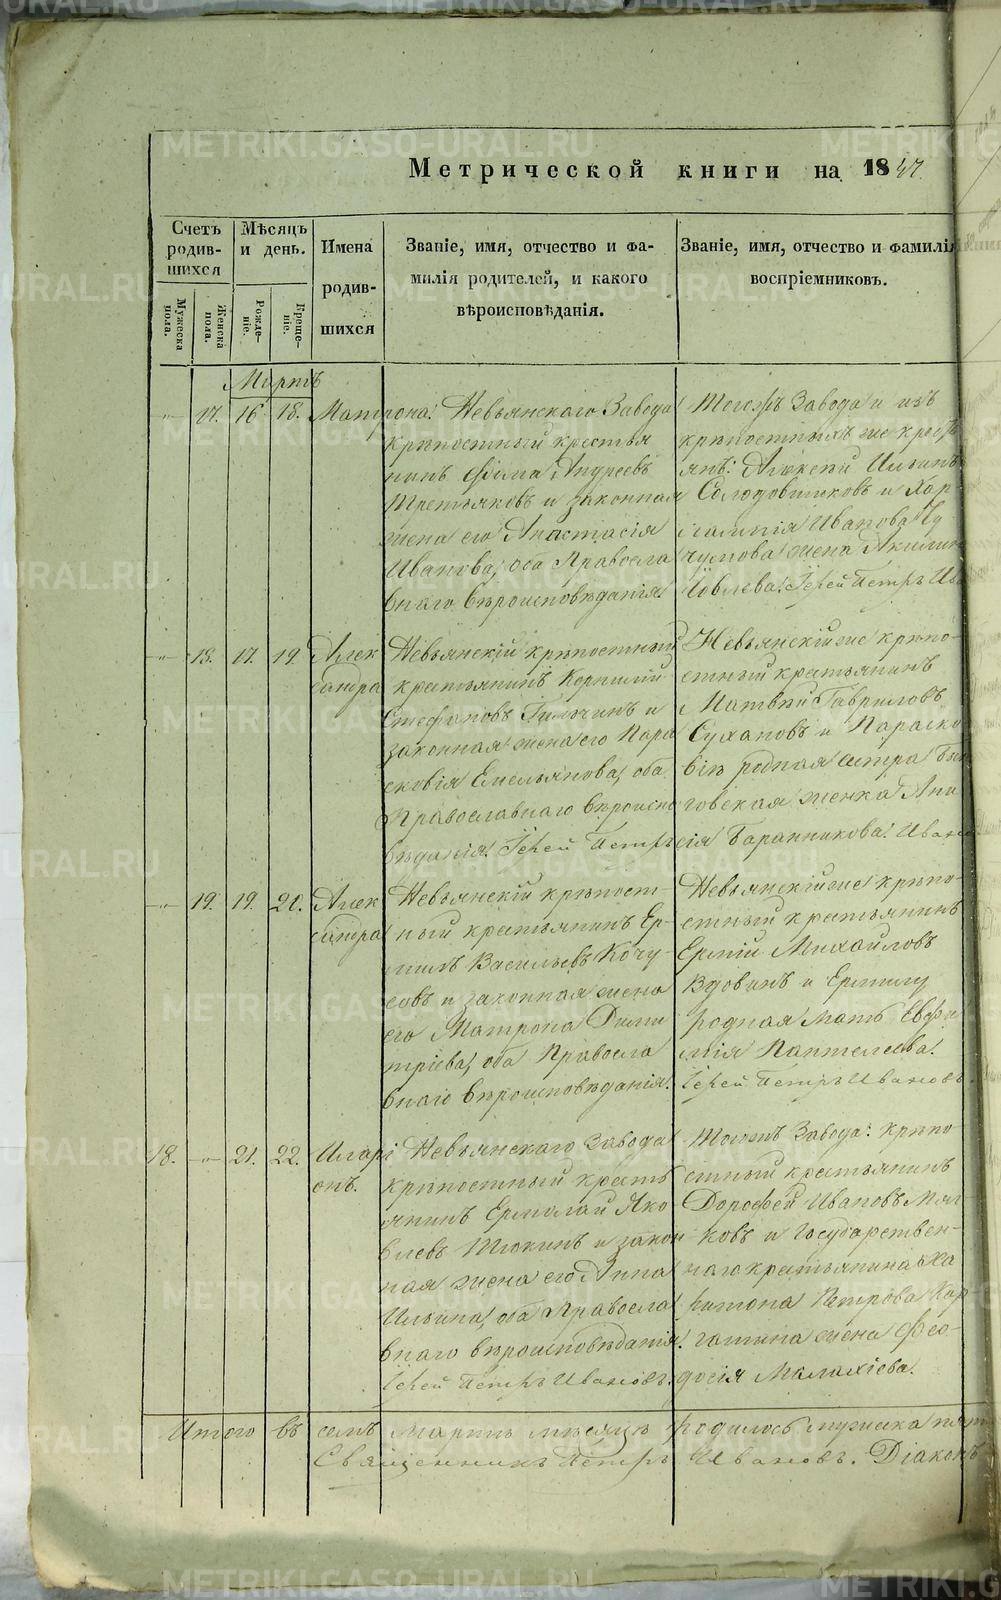 Метрической книги на 1847
Счетъ родив-шихся
Мѣсяцъ и день.
Имена родив-шихся
Званіе, имя, отчество и фа-милія родителей, и какого вѣроисповѣданія.
Званіе, имя, отчество и фамилія воспріемниковъ.
Мужеска пола.
Женска пола.
Рожде-ніе.
Креще-ніе.
Мартъ
" 17. 16 18. Матрона. Невьянскаго Завода
крѣпостный крестья
нинъ Фома Андреевъ
Третьяковъ и законная
жена его Анастасія
Иванова, оба Правосла
внаго вѣроисповѣданія.
Тогожъ Завода и изъ
крѣпостныхъ же крест
янъ: Алексѣй Ильинъ
Солодовниковъ и Хар-
лампія Иванова
жена Акилин
Іовлева. Іерей Петръ Ив
" 18. 17. 19. Алек
сандра
Невьянскій крѣпостный
крестьянинъ Корнилій
Стефановъ и
законная жена его Пара
сковія Емельянова, оба
Православнаго вѣроиспо
вѣданія. Іерей Петръ
Невьянскій же крѣпо-
стный крестьянинъ
Матвѣй Гавриловъ
Сухановъ и Параско
віи родная сестра
женка Ани
сія Баранникова. Иванов
" 19. 19. 20. Алек
сандра
Невьянскій крѣпост-
ный крестьянинъ Ер-
милъ Васильевъ Кочу-
совъ и законная жена
его Матрона Дими
тріева, оба Правосла
внаго вѣроисповѣданія.
Невьянскій же крѣпо-
стный крестьянинъ
Ермій Михайловъ
Вдовинъ и Ермилу
родная мать Евфи
мія Пантелеева.
Іерей Петръ Ивановъ.
18. " 21. 22. Иларі
онъ.
Невьянскаго Завода
крѣпостный кресть
янинъ Ермолай Яко
влевъ Тюкинъ и закон
ная жена его Анна
Ильина, оба Правосла
внаго вѣроисповѣданія.
Іерей Петръ Ивановъ.
Тогожъ Завода: крѣпо
стный крестьянинъ
Дорофей Ивановъ Мяг-
ковъ и Государствен-
наго крестьянина Ха
ритона Петрова
жена Ѳео-
досія Малахіева.
Итого въ семъ Мартѣ мѣсяцѣ родилось мужеска пят
Священникъ Петръ Ивановъ. Діаконъ
METRIKI.GASO-URAL.RU